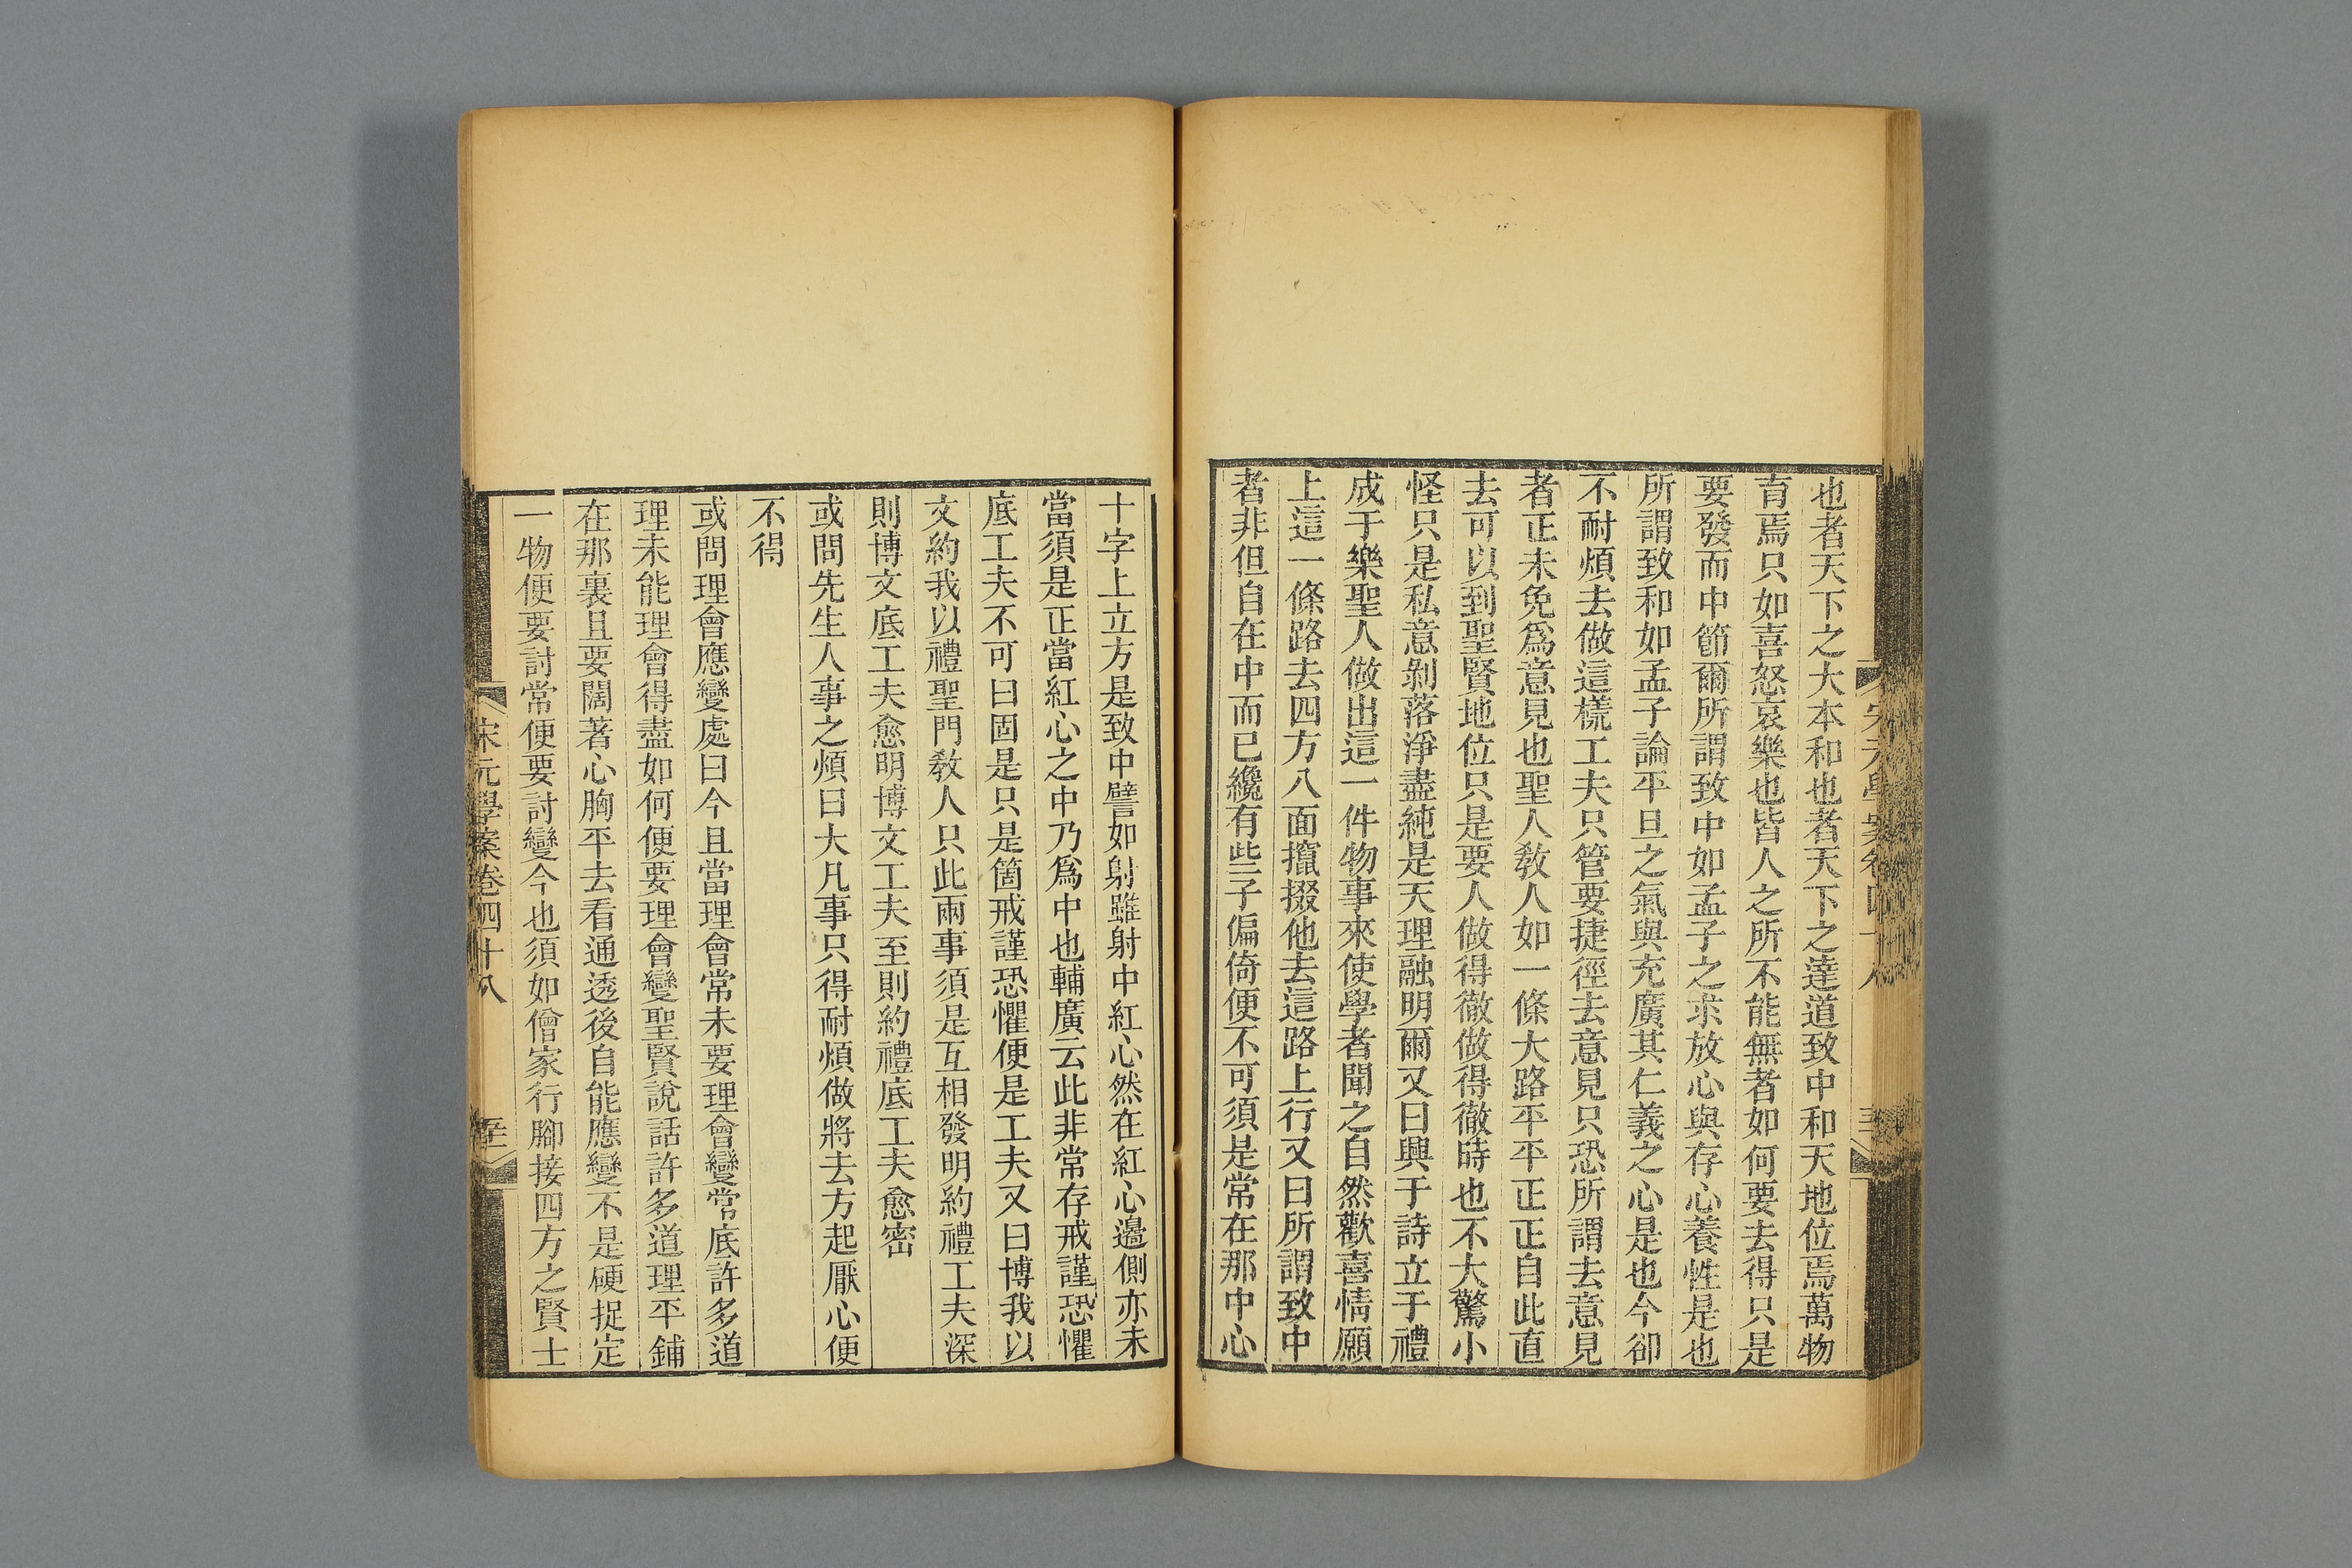 也者天下之大本和也者天下之達道致中和天地位焉萬物
育焉只如喜怒哀樂也皆人之所不能無者如何要去得只是
要發而中節爾所謂致中如孟子之求放心與存心養性是也
所謂致和如孟子論平旦之氣與充廣其仁義之心是也今卻
不耐煩去做這樣工夫只管要捷徑去意見只恐所謂去意見
者正未免爲意見也聖人敎人如一條大路平平正正自此直
去可以到聖賢地位只是要人做得徹做得徹時也不大驚小
怪只是私意剝落淨盡純是天理融明爾又曰興于詩立于禮
成于樂聖人做出這一件物事來使學者聞之自然歡喜情願
上這一條路去四方八面攛掇他去這路上行又曰所謂致中
者非但自在中而已纔有些子偏倚便不可須是常在那中心
十字上立方是致中譬如射雖射中紅心然在紅心邊側亦未
當須是正當紅心之中乃爲中也輔廣云此非常存戒謹恐懼
底工夫不可曰固是只是箇戒謹恐懼便是工夫又曰博我以
文約我以禮聖門敎人只此兩事須是互相發明約禮工夫深
則博文底工夫愈明博文工夫至則約禮底工夫愈密
或問先生人事之煩曰大凡事只得耐煩做將去方起厭心便
不得
或問理會應變處曰今且當理會常未要理會變常底許多道
理未能理會得盡如何便要理會變聖賢說話許多道理平鋪
在那裏且要闊著心胸平去看通透後自能應變不是硬捉定
一物便要討常便要討變今也須如僧家行腳接四方之賢士
宋元學案卷四十八